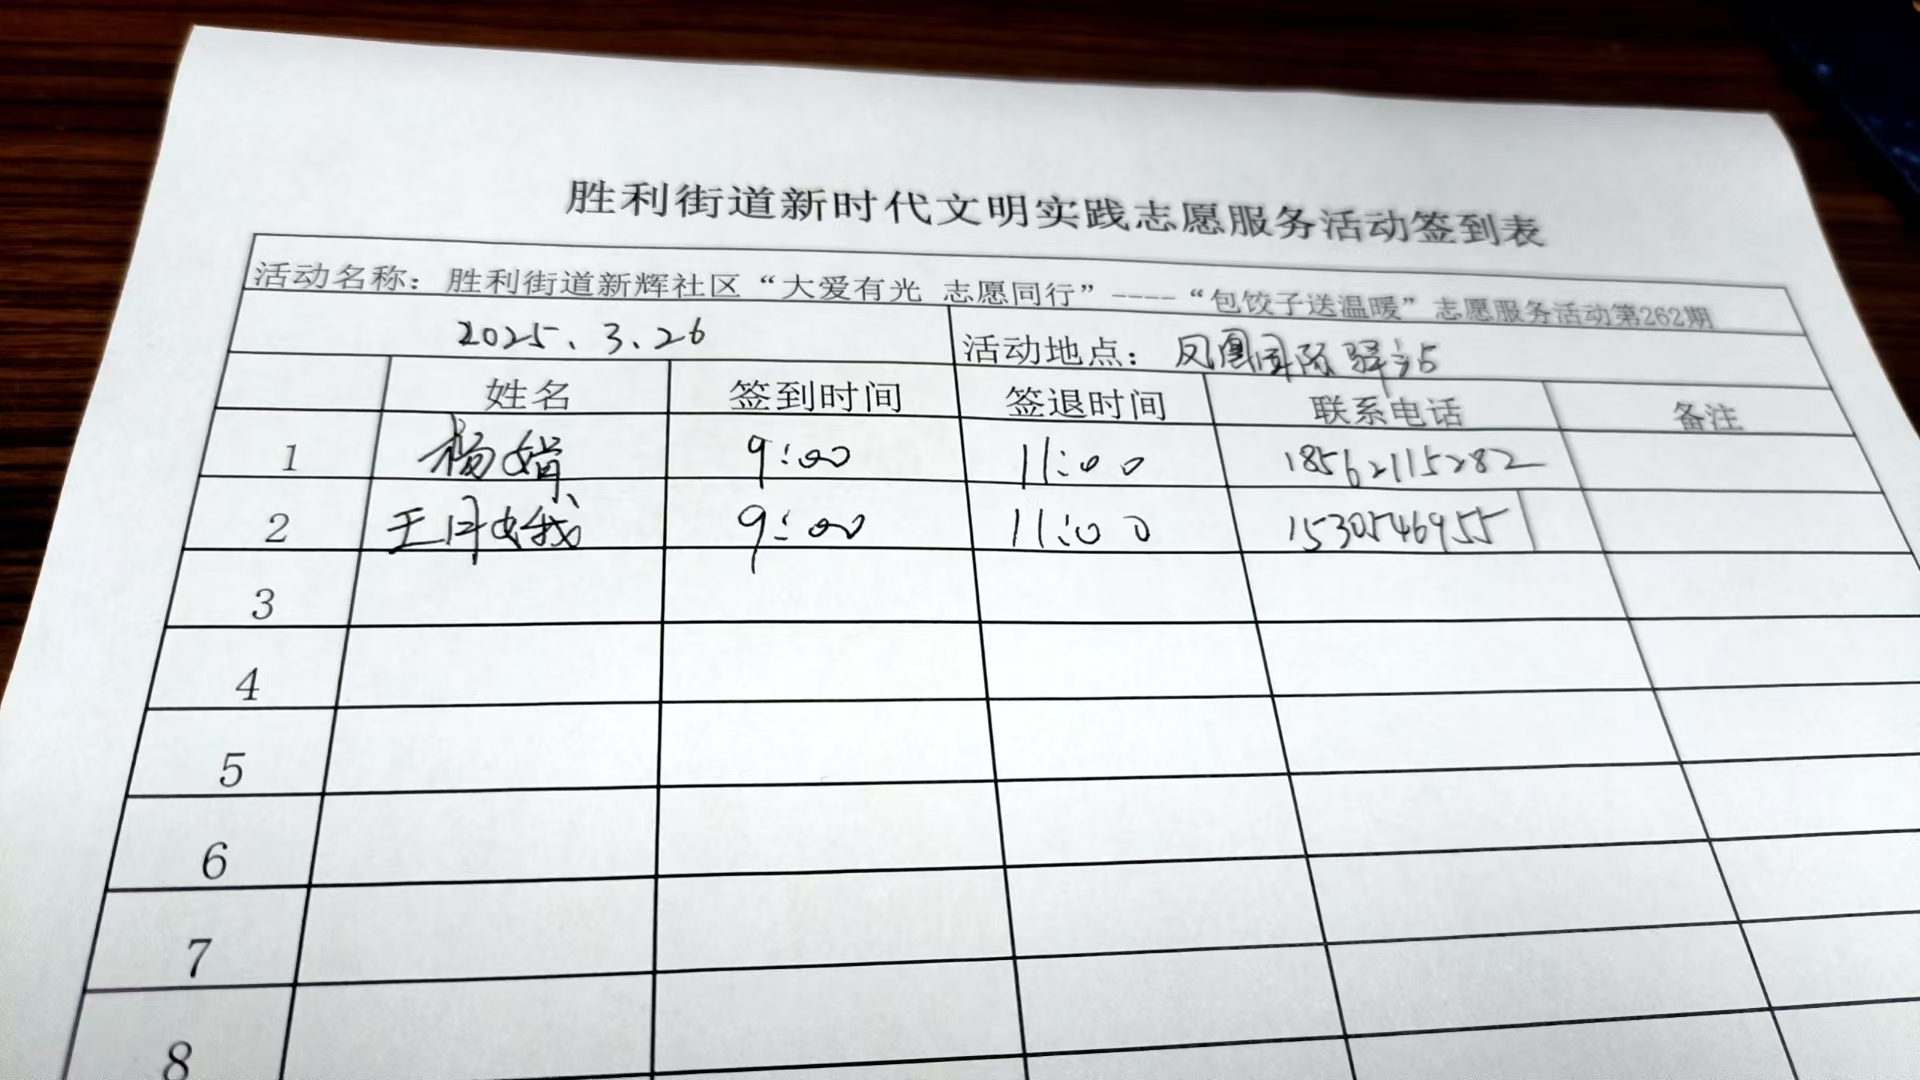 胜利街道新时代文明实践志愿服务活动签到表
活动名称：胜利街道新辉社区“大爱有光 志愿同行”----“包饺子送温暖”志愿服务活动第262期
2025.3.26 活动地点：凤凰国际驿站
姓名 签到时间 签退时间 联系电话 备注
1 杨娟 9:00 11:00 18562115282
2 王月娥 9:00 11:00 15305469551
3
4
5
6
7
8